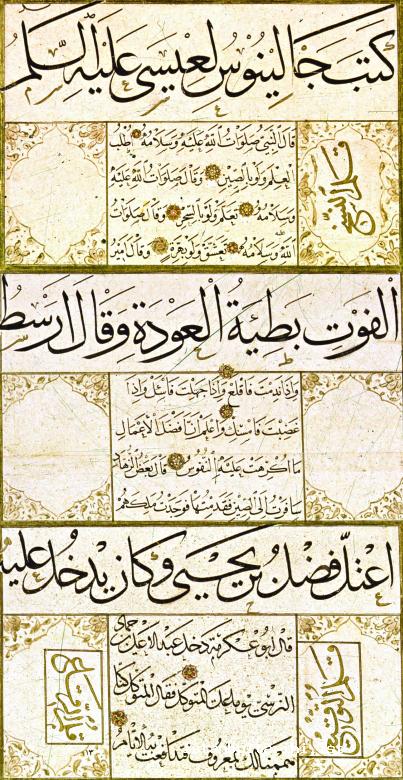 كتب جالينوس لعيسى عليه السلم
قال النبي صلوات الله عليه وسلامه اطلب
العلم ولو بالصين وقال صلوات الله عليه
وسلامه تعلم ولو بالسحر وقال صلوات
الله وسلامه تعشق ولو بهرة وقال امير
الفوت بطية العودة وقال ارسط
واذا ندمت فاقلع واذا جهلت فاسئل واذا
غضبت فامسك واعلم ان افضل الاعمال
ما اكرهت عليه النفوس قال بعض الزهاد
سافرت الى الصين فقدمتها فوجدت ملكهم
اعتل فضل بن يحيى وكان يدخل عليه
قال ابو عكرمة دخل عبد الاعلى بن حماد
النرسي يوما على المتوكل فقال المتوكل كنا
هممنا لك بمعروف فتدافعت به الايام